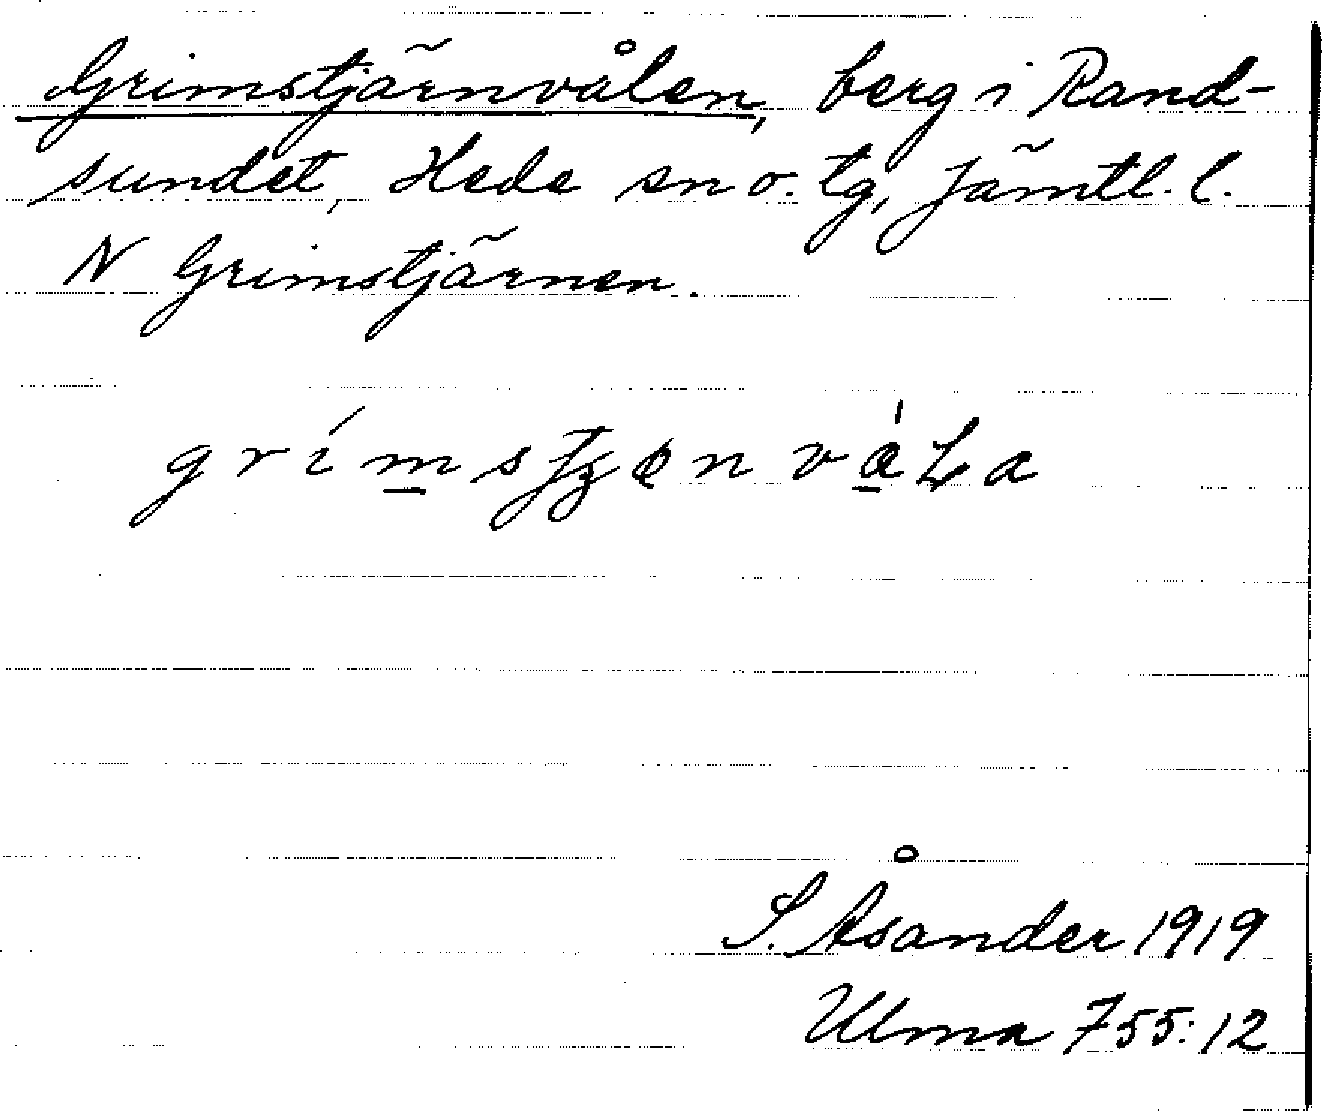 Grimstjärnvålen, berg i Rand-
sundet, Hede sn o. tg, Jämtl. l.
N Grimstjärnen.
S. Åsander 1919
Ulma 755:12